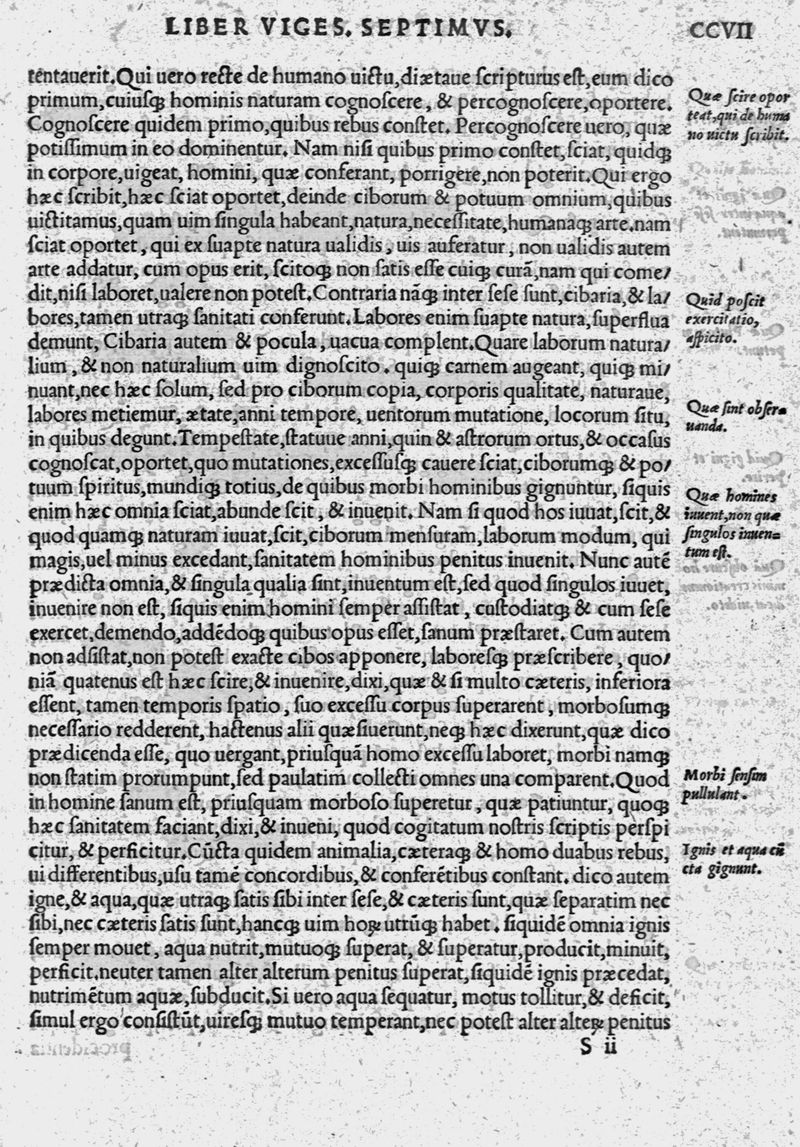 LIBER VIGES. SEPTIMVS.
CCVII
tentauerit.Qui uero recte de humano uictu,diætaue ſcripturus eſt,eum dico
primum,cuiuſꝗ hominis naturam cognoſcere, & percognoſcere,oportere.
Cognoſcere quidem primo,quibus rebus conſtet. Percognoſcere uero, quæ
potiſſimum in eo dominentur. Nam niſi quibus primo conſtet,ſciat, quidꝗ
in corpore,uigeat, homini, quæ conferant, porrigere,non poterit.Qui ergo
hæc ſcribit,hæc ſciat oportet,deinde ciborum & potuum omnium,quibus
uictitamus,quam uim ſingula habeant,natura,neceſſitate,humanaꝗ arte.nam
ſciat oportet, qui ex ſuapte natura ualidis, uis auferatur, non ualidis autem
arte addatur, cum opus erit, ſcitoꝗ non ſatis eſſe cuiꝗ curā,nam qui come/
dit,niſi laboret,ualere non poteſt.Contraria nāꝗ inter ſeſe ſunt,cibaria,& la/
bores,tamen utraꝗ ſanitati conferunt.Labores enim ſuapte natura,ſuperflua
demunt, Cibaria autem & pocula, uacua complent.Quare laborum natura/
lium, & non naturalium uim dignoſcito. quiꝗ carnem augeant, quiꝗ mi/
nuant,nec hæc ſolum, ſed pro ciborum copia, corporis qualitate, naturaue,
labores metiemur, ætate,anni tempore, uentorum mutatione, locorum ſitu,
in quibus degunt.Tempeſtate,ſtatuue anni,quin & aſtrorum ortus,& occaſus
cognoſcat,oportet,quo mutationes,exceſſuſꝗ cauere ſciat,ciborumꝗ & po/
tuum ſpiritus,mundiꝗ totius,de quibus morbi hominibus gignuntur, ſiquis
enim hæc omnia ſciat,abunde ſcit, & inuenit. Nam ſi quod hos iuuat,ſcit,&
quod quamꝗ naturam iuuat,ſcit,ciborum menſuram,laborum modum, qui
magis,uel minus excedant,ſanitatem hominibus penitus inuenit. Nunc autē
prædicta omnia,& ſingula qualia ſint,inuentum eſt,ſed quod ſingulos iuuet,
inuenire non eſt, ſiquis enim homini ſemper aſſiſtat, cuſtodiatꝗ & cum ſeſe
exercet,demendo,addēdoꝗ quibus opus eſſet,ſanum præſtaret. Cum autem
non adſiſtat,non poteſt exacte cibos apponere, laboreſꝗ præſcribere, quo/
niā quatenus eſt hæc ſcire,& inuenire,dixi,quæ & ſi multo cæteris, inferiora
eſſent, tamen temporis ſpatio, ſuo exceſſu corpus ſuperarent, morboſumꝗ
neceſſario redderent, hactenus alii quæſiuerunt,neꝗ hæc dixerunt,quæ dico
prædicenda eſſe, quo uergant,priuſquā homo exceſſu laboret, morbi namꝗ
non ſtatim prorumpunt,ſed paulatim collecti omnes una comparent.Quod
in homine ſanum eſt, priuſquam morboſo ſuperetur, quæ patiuntur, quoꝗ
hæc ſanitatem faciant,dixi,& inueni, quod cogitatum noſtris ſcriptis perſpi
citur, & perficitur.Cūcta quidem animalia,cæteraꝗ & homo duabus rebus,
ui differentibus,uſu tamē concordibus,& conferētibus conſtant. dico autem
igne,& aqua,quæ utraꝗ ſatis ſibi inter ſeſe,& cæteris ſunt,quæ ſeparatim nec
ſibi,nec cæteris ſatis ſunt,hancꝗ uim hoꝝ utrūꝗ habet. ſiquidē omnia ignis
ſemper mouet, aqua nutrit,mutuoꝗ ſuperat, & ſuperatur,producit,minuit,
perficit.neuter tamen alter alterum penitus ſuperat,ſiquidē ignis præcedat,
nutrimētum aquæ,ſubducit.Si uero aqua ſequatur, motus tollitur,& deficit,
ſimul ergo conſiſtūt,uireſꝗ mutuo temperant,nec poteſt alter alteꝝ penitus
S ii
Quæ ſcire opor
teat,qui de huma
no uictu ſcribit.
Quid poſcit
exercitatio,
aſpicito.
Quæ ſint obſer=
uanda.
Quæ homines
iuuent,non quæ
ſingulos inuen=
tum eſt.
Morbi ſenſim
pullulant.
Ignis et aqua cū
cta gignunt.